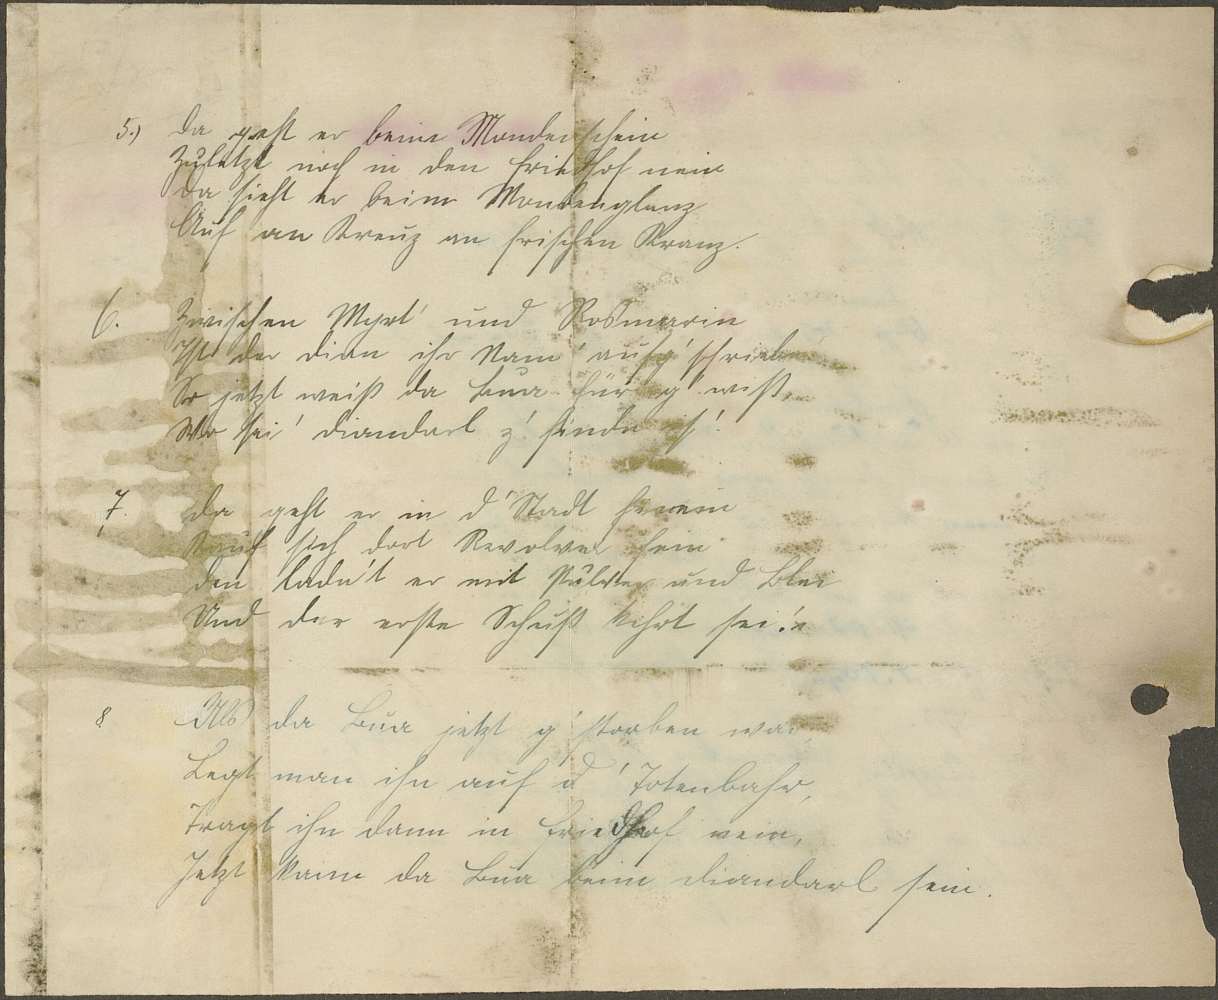 5.) Da geht er beim Mondenschein
Zuletzt noch in den Friedhof nein
Da sieht er beim Mondenglanz
Auf an Kreuz an frischen Kranz.
6. Zwischen Myrt' und Rosmarin
Ist der Dian ihr Nam' aufg'schrieb
So jetzt weiß da Bua für g'wiß,
Wo sei' Diandarl z' finden is'.
7. Da geht er in d' Stadt herein
Kauf sich dort Revolver fein
Den ladn't er mit Pulver und Blei
Und der erste Schuß kehrt sei!
8 Als da Bua jetzt g'storben war
Legt man ihn auf d' Totenbahr,
Tragt ihn dann in Friedhof nein,
Jetzt kann da Bua beim Diandarl sein.